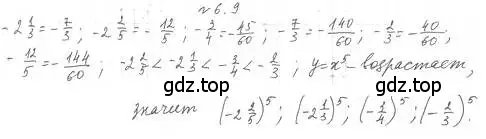 № 6.9
-2 1/3 = -7/3 ; -2 2/5 = -12/5 ; -3/4 = -45/60 ; -7/3 = -140/60 ; -2/3 = -40/60 ;
-12/5 = -144/60 ; -2 2/5 < -2 1/3 < -3/4 < -2/3 ; y = x⁵ возрастает,
gdz.top gdz.top
значит (-2 2/5)⁵ ; (-2 1/3)⁵ ; (-3/4)⁵ ; (-2/3)⁵.
gdz.top